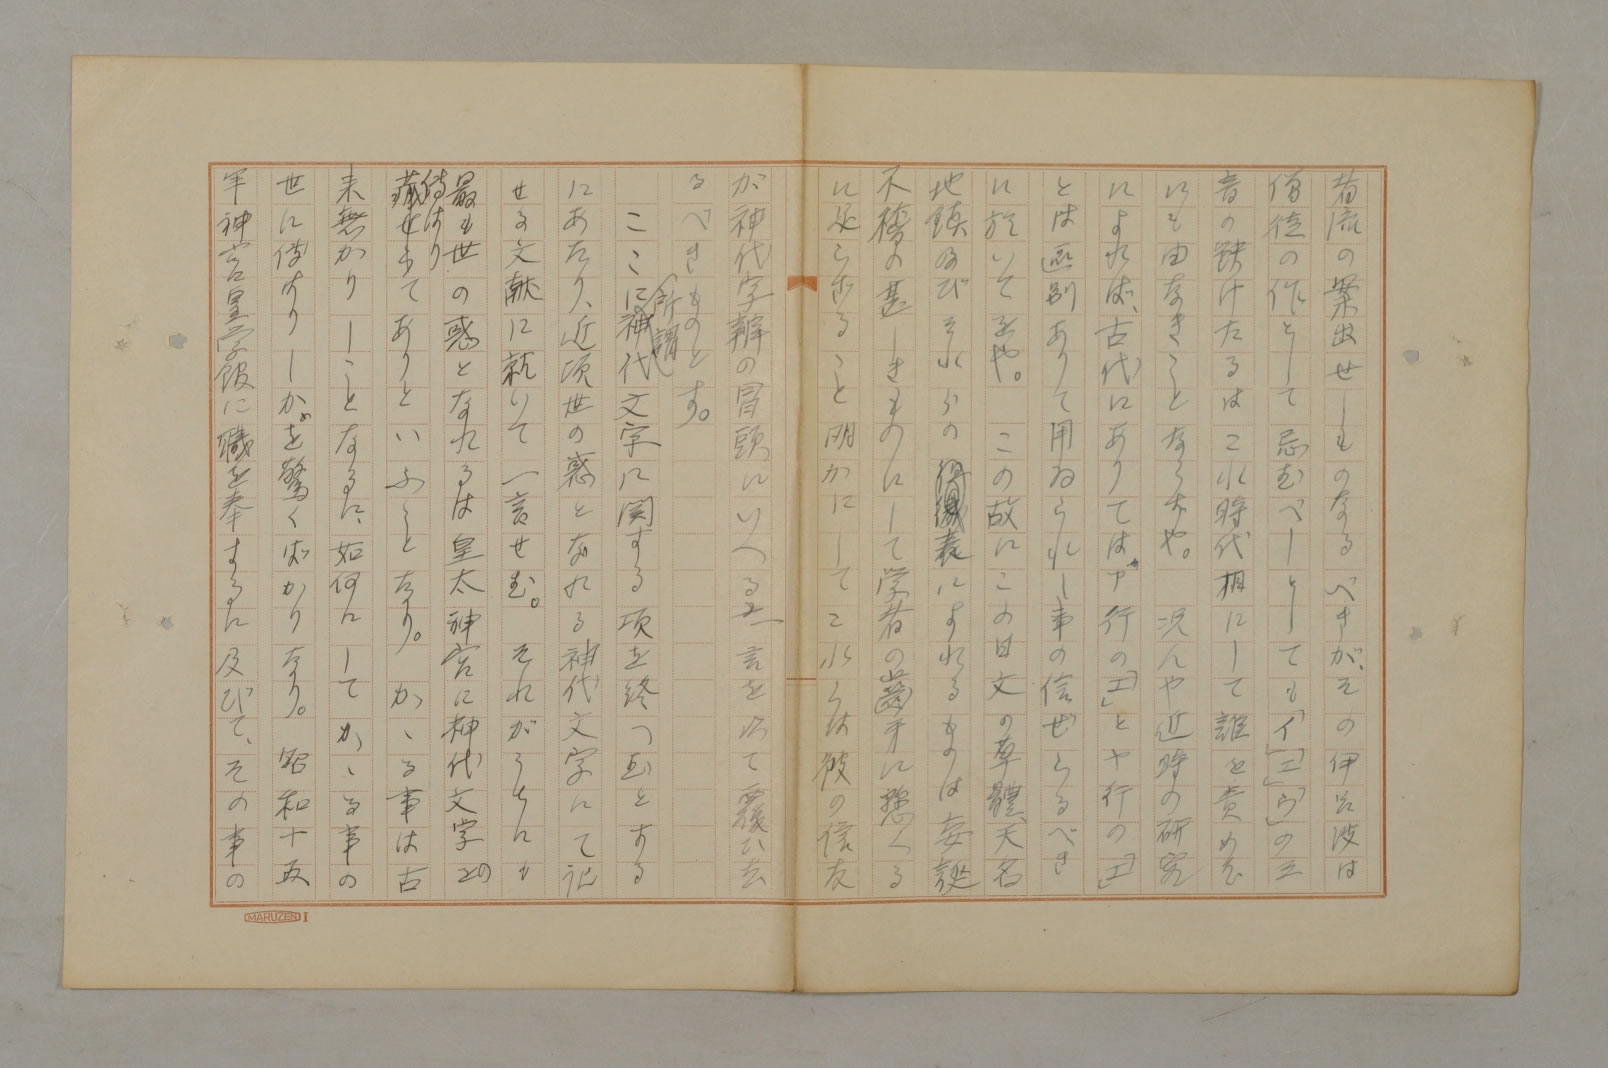 者流の案出せしものなるべきが、その伊呂波は
僧徒の作として忌むべしとしても「イ」「エ」「ウ」の三
音の缺けたるはこれ時代相にして誰を責めむ
にも由なきことならずや。況んや近時の研究
によれば、古代にありてはア行の「エ」とヤ行の「エ」
とは画別ありて用ゐられし事の信ぜらるべき
に於いてをや。この故にこの日文の草體、天名
地鎮及びそれらの ににすれるものは妄誕
不稽の甚しきものにして学者の歯牙に懸くる
に足らざること明かにしてこれらは彼の信友
が神代字辨の冒頭にいへる一言を以て覆ひ去
るべきものとす。
ここに所謂神代文字に関する項を終つむとする
にあたり、近頃世の惑となれる神代文字にて記
せる文献に就いて一言せむ。それがうちにも
最も世の惑となれるは皇太神宮に神代文字の
傳はりてありといふことなり。かゝる事は古
来無かりしことなるに、如何にしてかゝる事の
世に傳はりしかを驚くばかりなり。昭和十五
年神宮皇学館に職を奉ずるに及びて、その事の
MARUZEN I